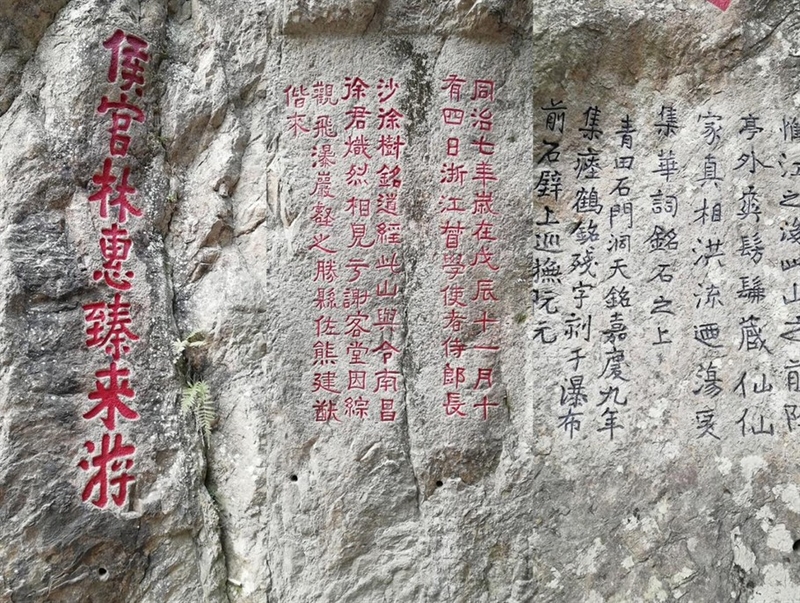 江之後此山之前
亭外爽髣髴藏仙仙
家真相洪流迴蕩爰
集華詞銘石之上
青田石門洞天銘嘉慶九年
集瘞鶴銘殘字于瀑布
前石壁上巡撫阮元
同治七年歲在戊辰十一月十
有四日浙江督學使者侍郎長
沙徐樹銘道經此山與令南昌
徐君熾烈相見于謝客堂因綜
觀飛瀑巖壑之勝縣佐熊建猷
偕來
侯官林惠臻来游